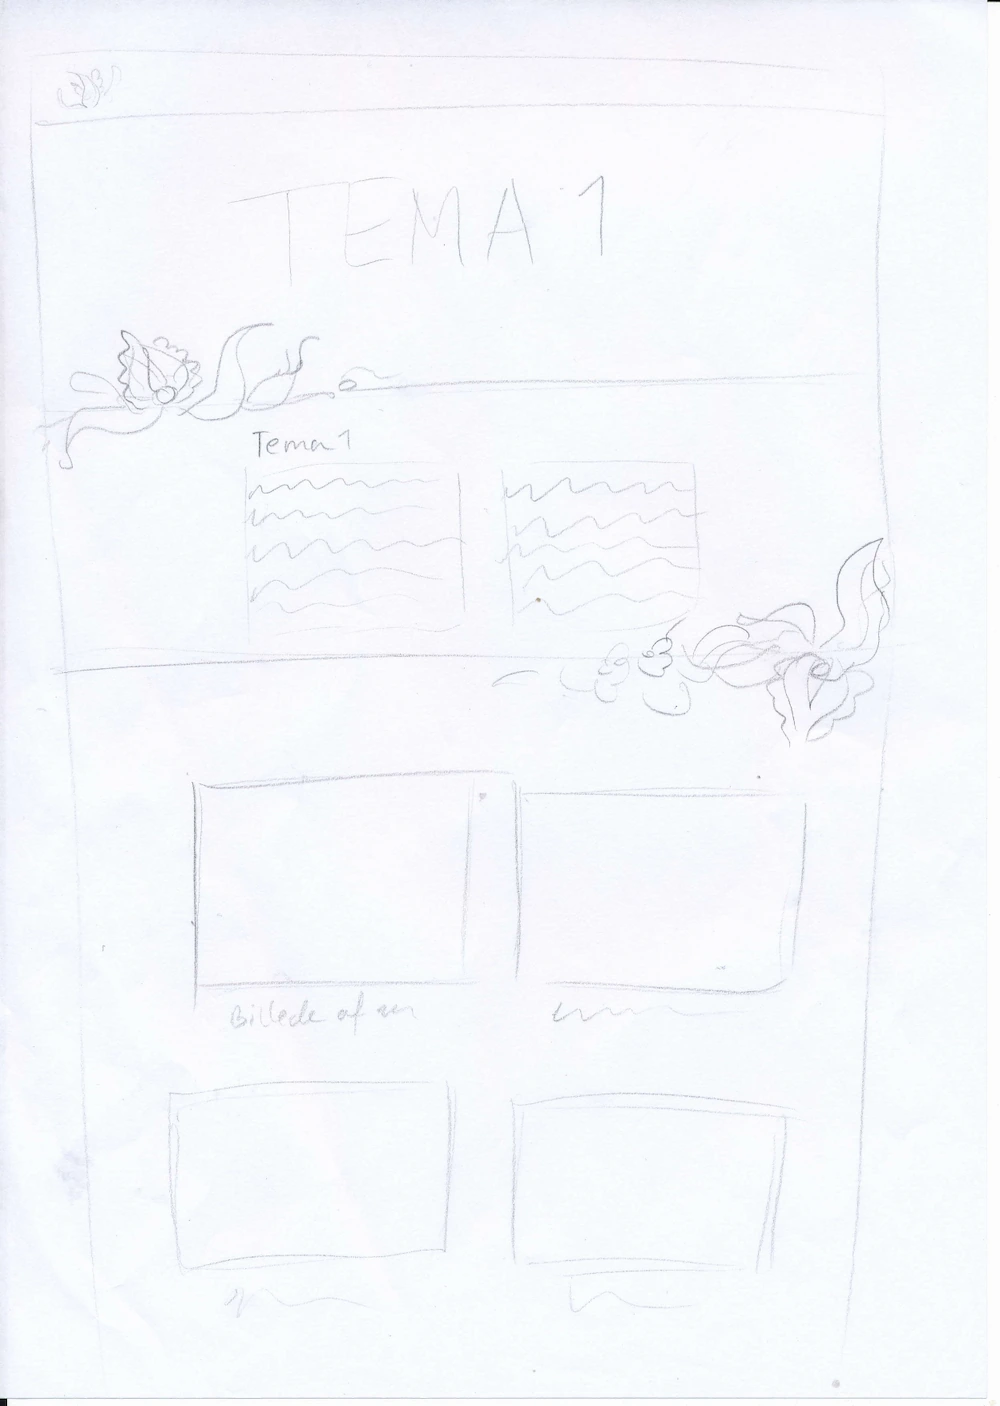 TEMA 1
Tema 1
Billede af en